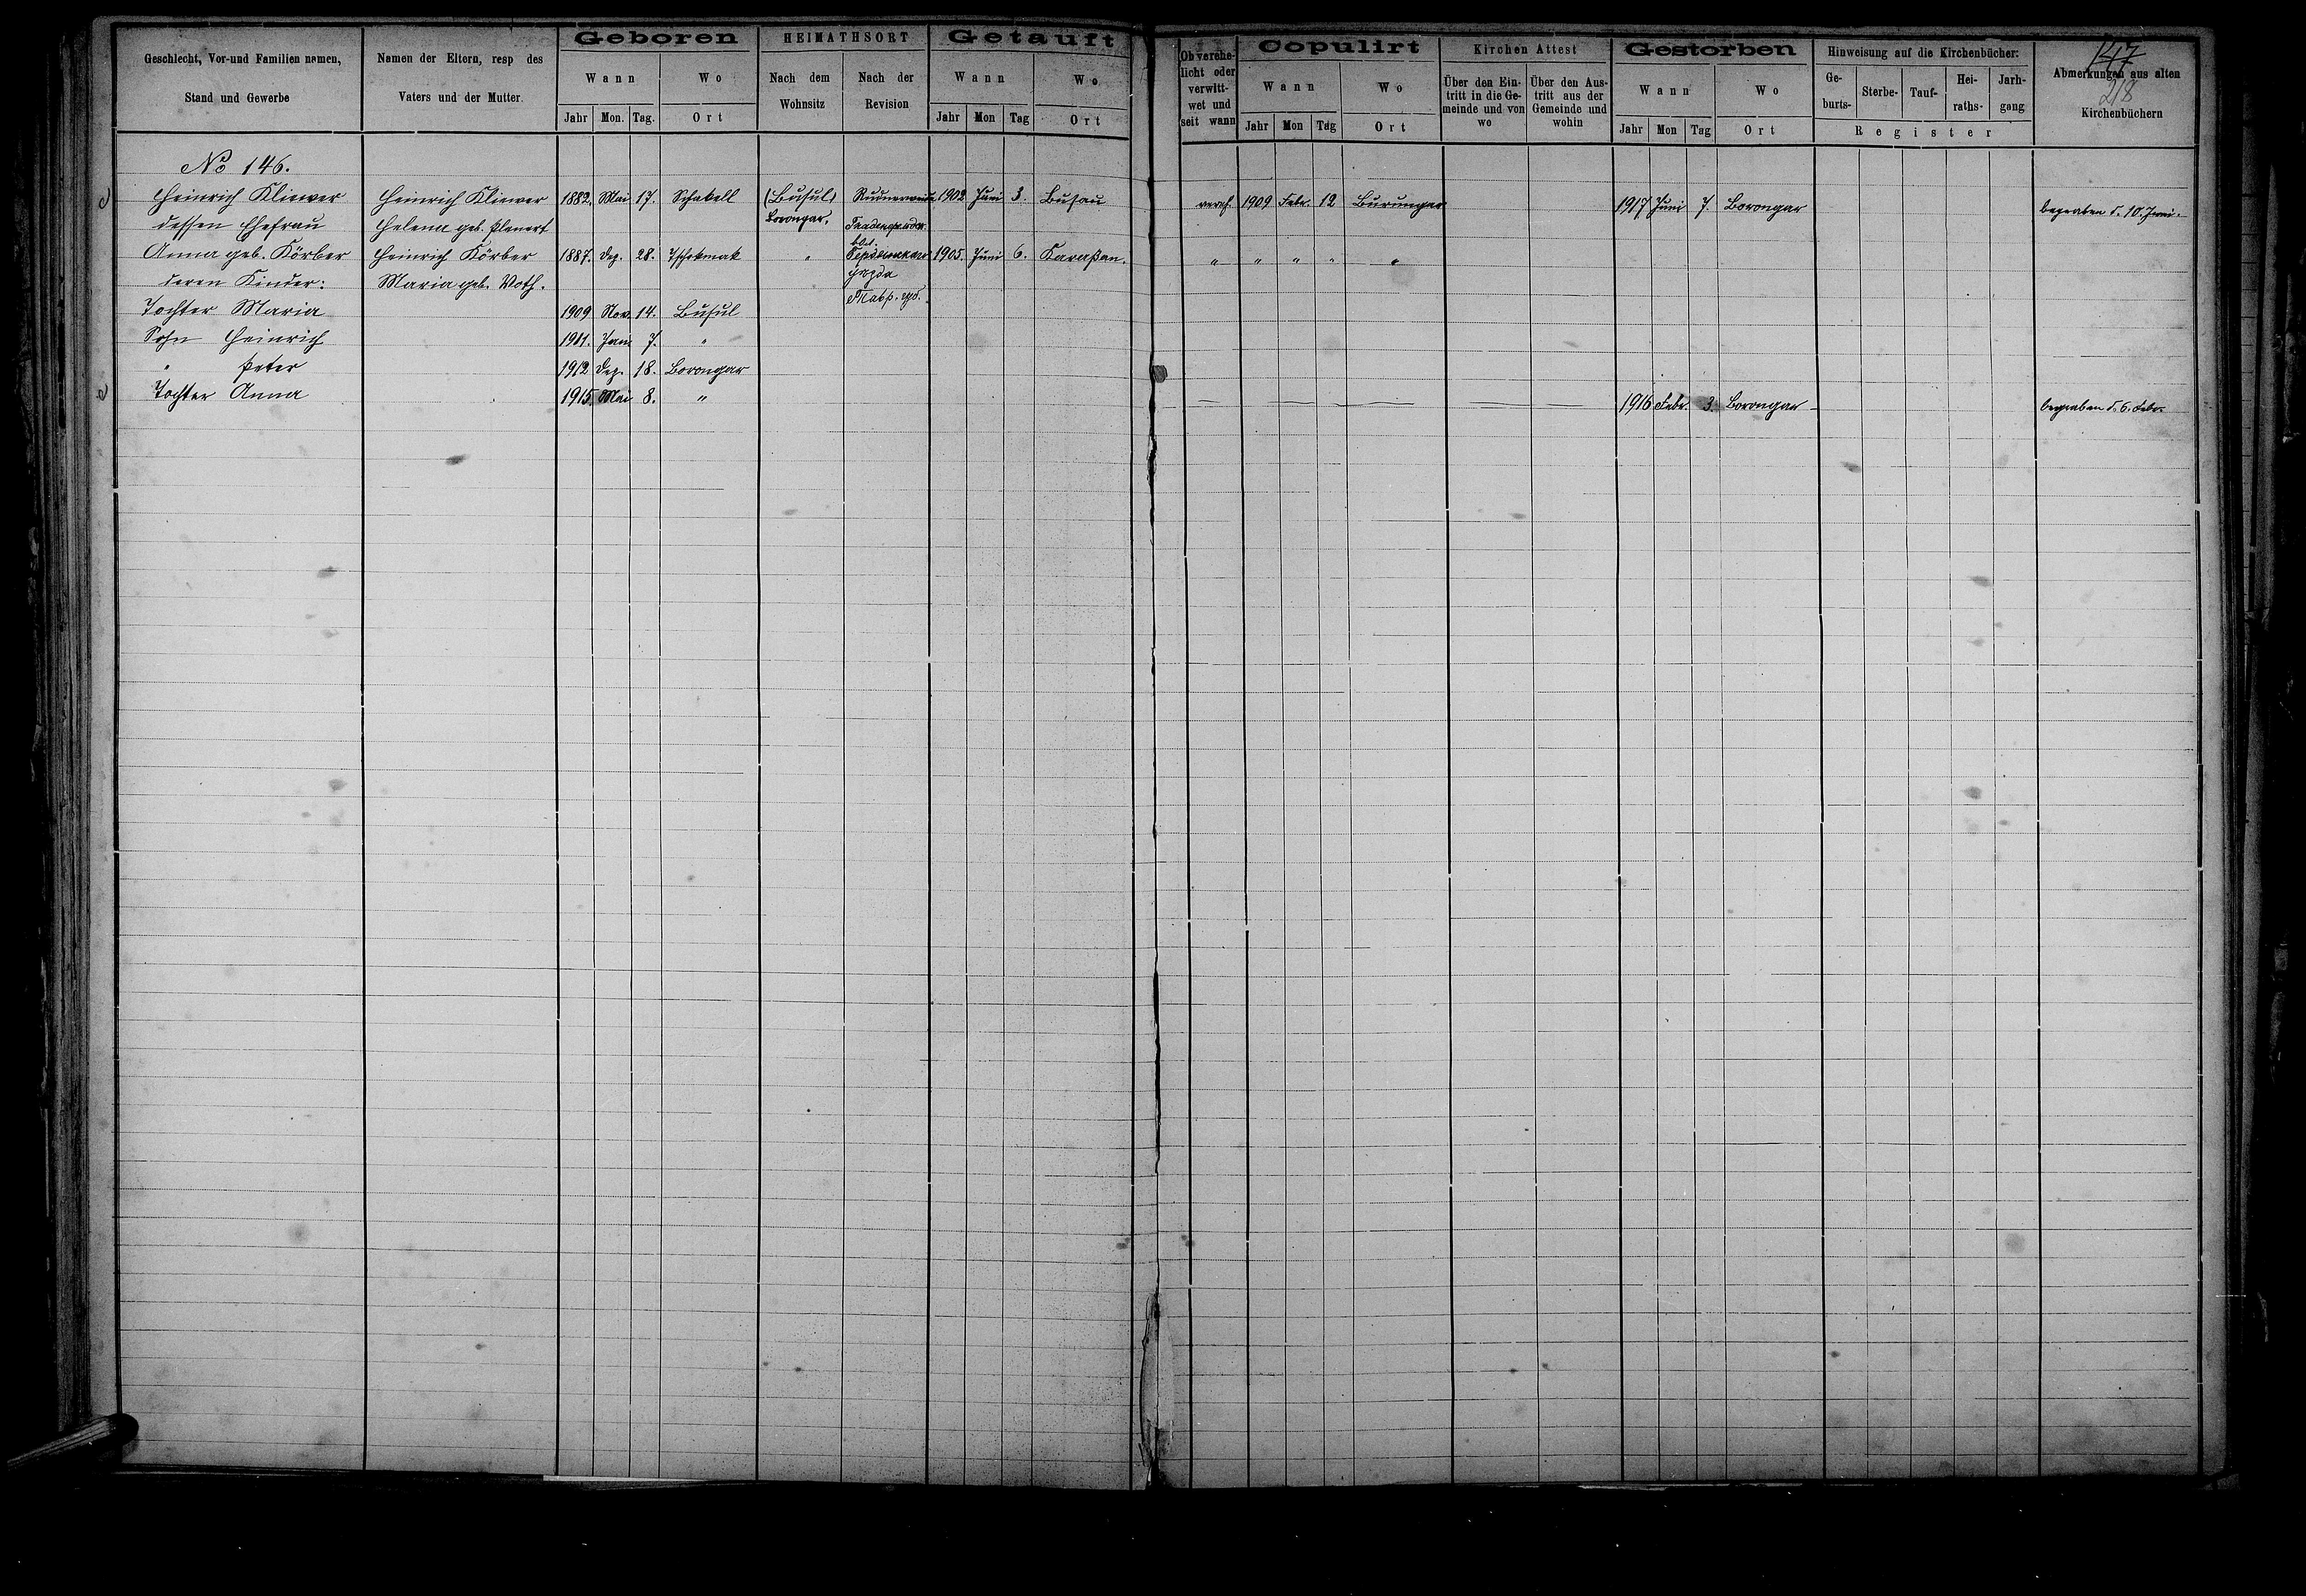 Geboren HEIMATHSORT Getauft
Geschlecht, Vor-und Familien namen, Stand und Gewerbe
Namen der Eltern, resp des Vaters und der Mutter
Wann Wo Nach dem Wohnsitz Nach der Revision Wann Wo
Jahr Mon. Tag. Ort Jahr Mon Tag Ort
Copulirt Kirchen Attest Gestorben Hinweisung auf die Kirchenbücher: 147
Ob verehelicht oder verwittwet und seit wann
Wann Wo Über den Eintritt in die Gemeinde und von wo Über den Austritt aus der Gemeinde und wohin Wann Wo Geburts- Sterbe- Tauf- Heiraths- Jarhgang
Abmerkungen aus alten Kirchenbüchern
218
Jahr Mon Tag Ort Jahr Mon Tag Ort Register
No 146.
Heinrich Kliewer Heinrich Kliewer 1882. Mai 17. Schakell (Busul) Rudnerweide 1902 Juni 3. Busau vereh. 1909 Febr. 12 Burungar 1917 Juni 7. Borongar begraben d. 10. Juni.
dessen Ehefrau Helena geb. Plenert Borongar. Гнаденфельдск.
вол.
Anna geb. Körber Heinrich Körber 1887. Dez. 28. Tschokmak " Бердянскаго 1905. Juni 6. Karaßan. " " " " "
уѣзда
deren Kinder: Maria geb. Voth.
Тавр. губ.
Tochter Maria 1909 Nov. 14. Busul
Sohn Heinrich 1911. 7. "
" Peter 1912 Dez. 18. Borongar
Tochter Anna 1915. Mai 8. " 1916 Febr. 3. Borongar begraben d. 6. Febr.